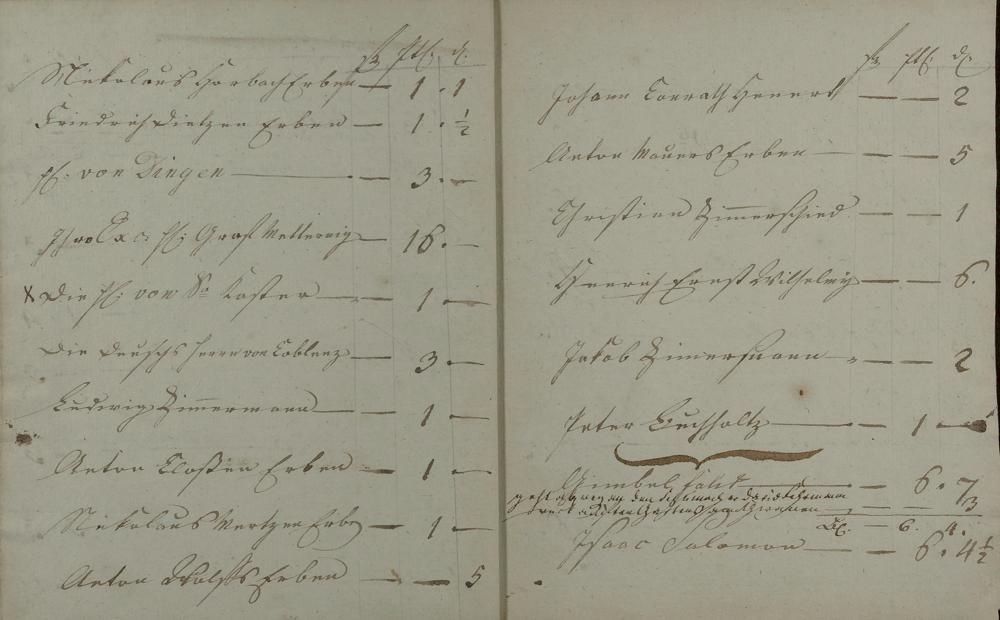 Nikolaus Horbach Erben — 1 . 1
Friedrich Dietzen Erben — 1 . ½
H: von Dingen — — 3 . —
Ihro Exc: H: Graf Metternig — 16 . —
X Die H: von St Kastor — — 1 . —
Die Deutschs Herrn von Coblenz — 3 . —
Ludwig Zimmermann — — 1 —
Anton Closten Erben — — 1 . —
Nikolaus Mertzen Erb — 1 . —
Anton Wolffs Erben — — — 5
Johann Conrath Henert — — 2
Anton Mauers Erben — — — 5
Christian Zimmerschied — — 1
Henrich Ernst Wilhelmy — — 6.
Jakob Zimermann — — — 2
Peter Buchholtz — — 1 —
Gimbel — 6 . 7
geht ab wegen den — — 3
— 6. 4.
Isaac Salomon — — 6 . 4½